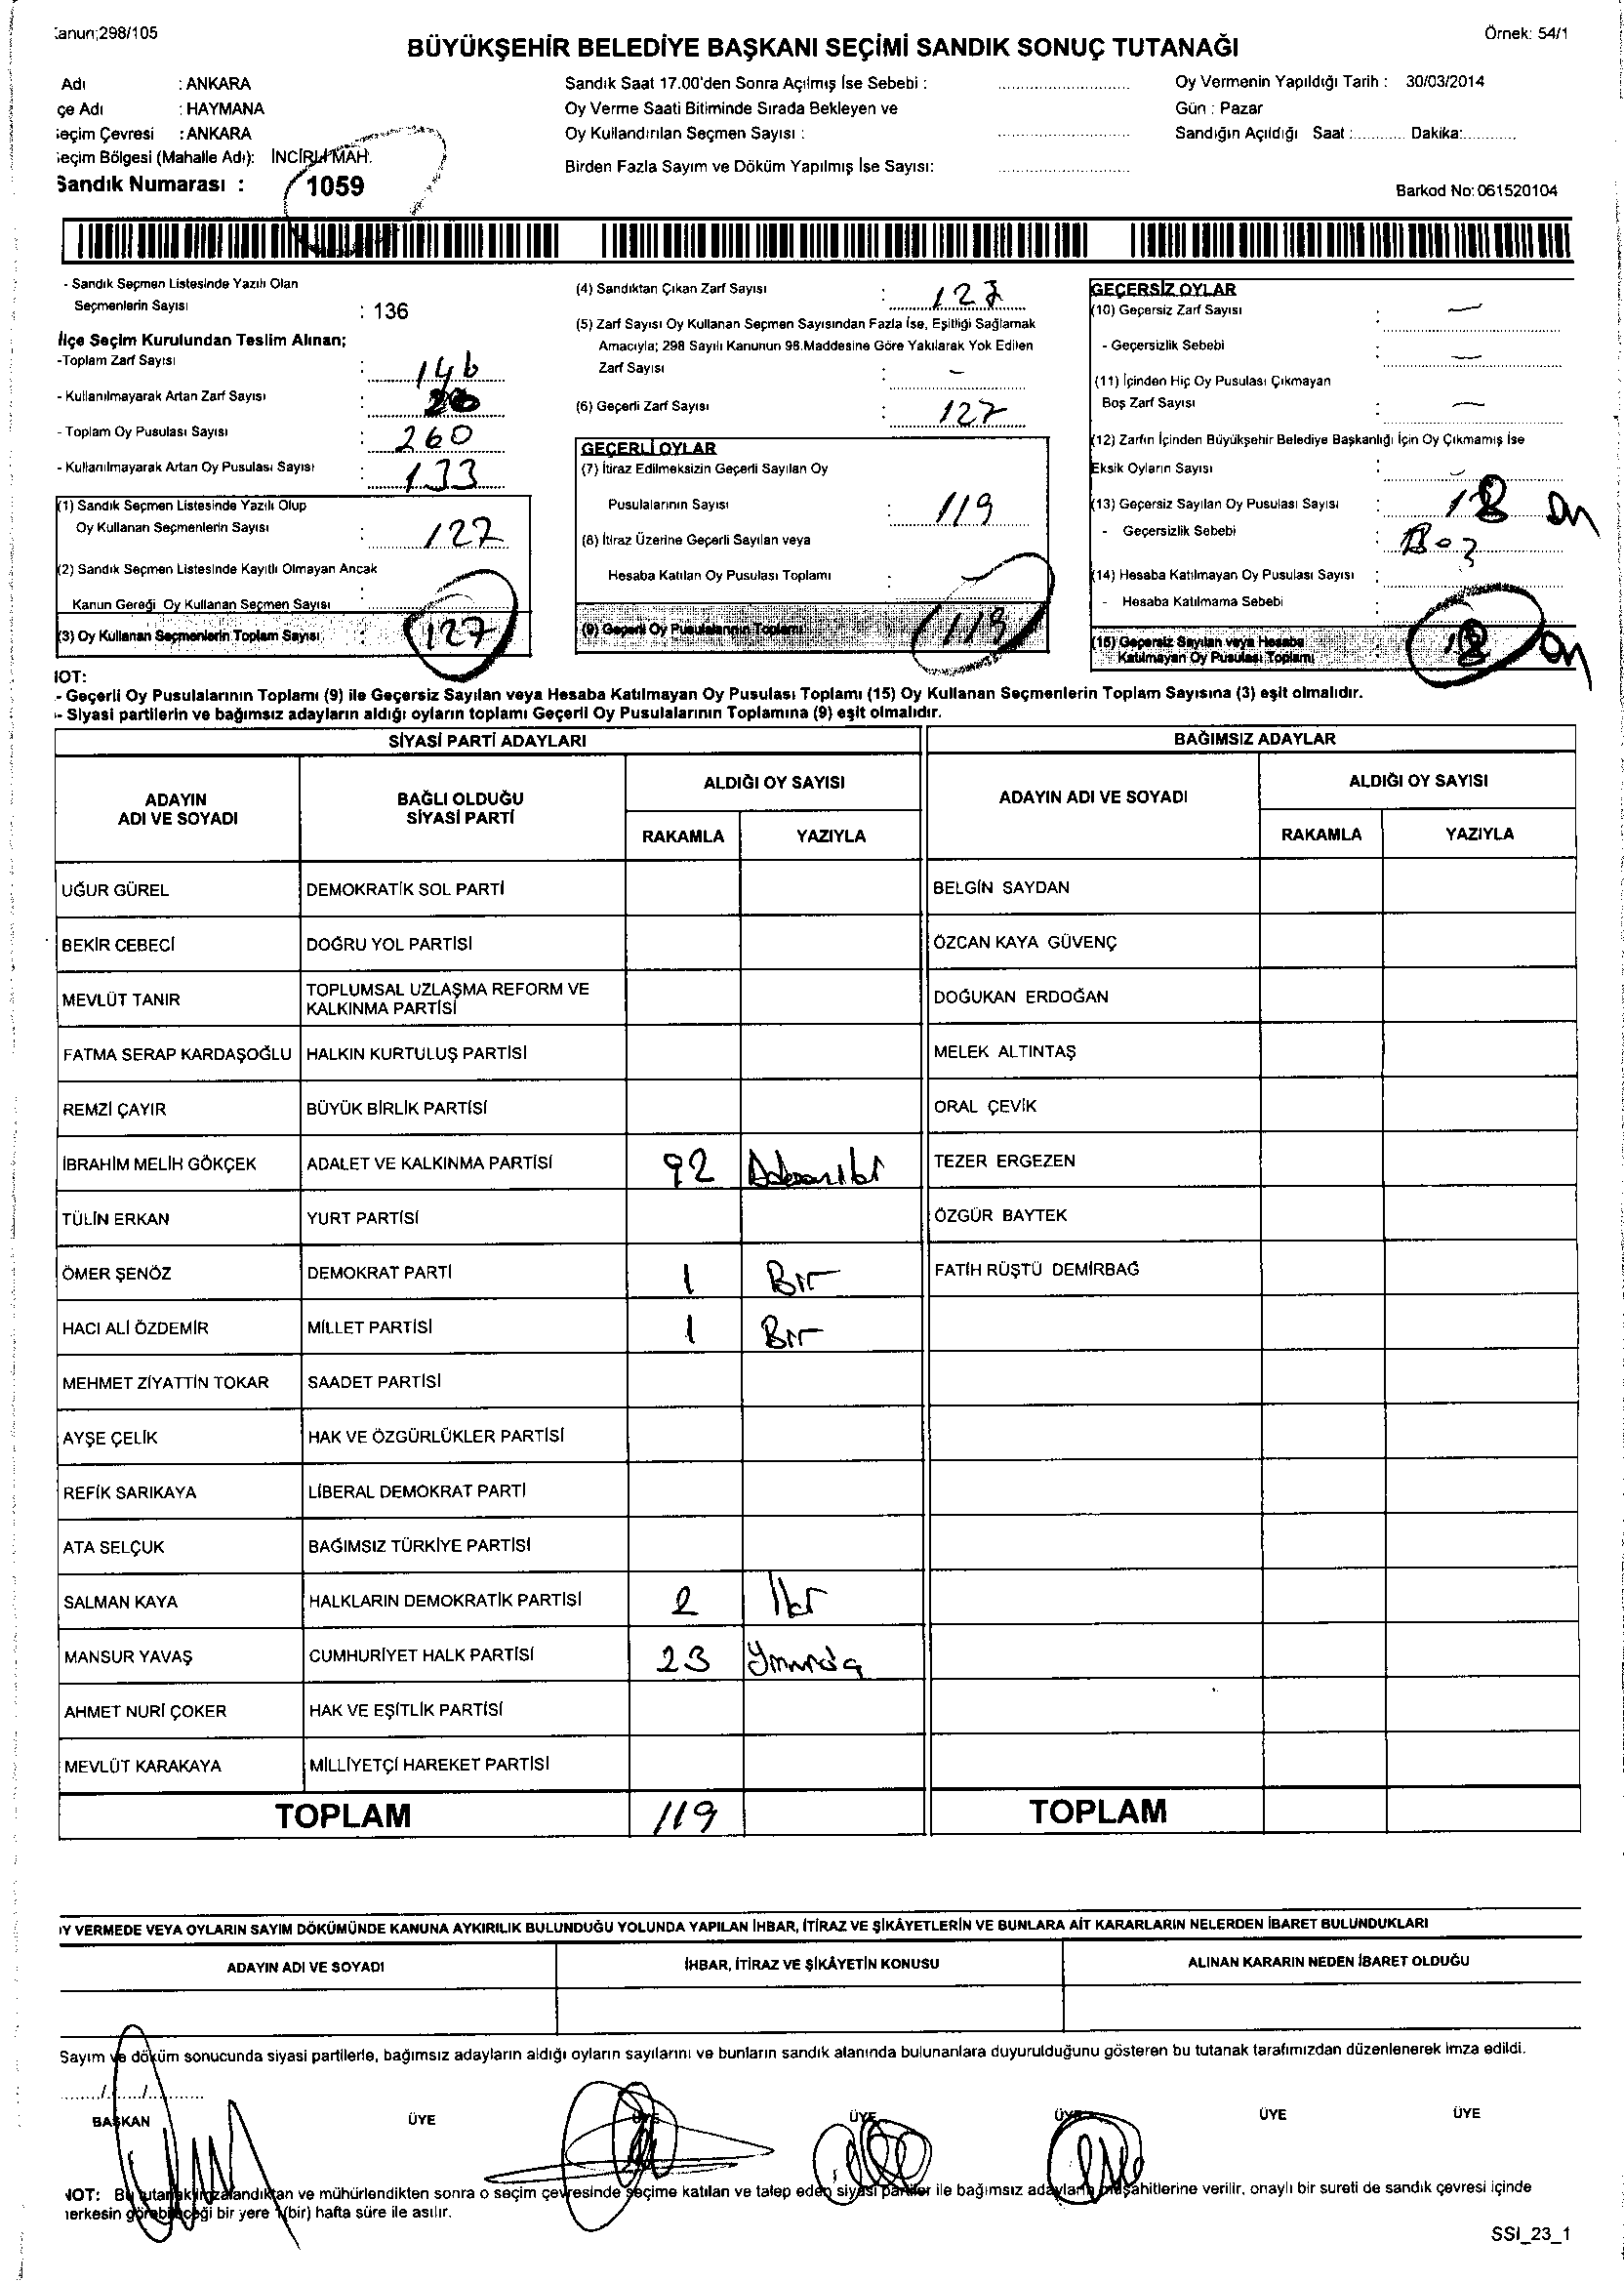 anun;298/105
Örnek: 54/1
BÜYÜKŞEHİR BELEDİYE BAŞKANI SEÇİMİ SANDIK SONUÇ TUTANAĞI
Adı : ANKARA
çe Adı : HAYMANA
eçim Çevresi : ANKARA
eçim Bölgesi (Mahalle Adı): İNCİRLİ MAH.
Sandık Numarası : 1059
Sandık Saat 17.00'den Sonra Açılmış İse Sebebi :
Oy Verme Saati Bitiminde Sırada Bekleyen ve
Oy Kullandırılan Seçmen Sayısı :
Birden Fazla Sayım ve Döküm Yapılmış İse Sayısı:
Oy Vermenin Yapıldığı Tarih : 30/03/2014
Gün : Pazar
Sandığın Açıldığı Saat :............ Dakika:............
Barkod No: 061520104
- Sandık Seçmen Listesinde Yazılı Olan
Seçmenlerin Sayısı : 136
İlçe Seçim Kurulundan Teslim Alınan;
-Toplam Zarf Sayısı : 146
- Kullanılmayarak Artan Zarf Sayısı :
- Toplam Oy Pusulası Sayısı : 260
- Kullanılmayarak Artan Oy Pusulası Sayısı : 133
(1) Sandık Seçmen Listesinde Yazılı Olup
Oy Kullanan Seçmenlerin Sayısı : 127
(2) Sandık Seçmen Listesinde Kayıtlı Olmayan Ancak
Kanun Gereği Oy Kullanan Seçmen Sayısı
(3) Oy Kullanan Seçmenlerin Toplam Sayısı : 127
(4) Sandıktan Çıkan Zarf Sayısı : 127
(5) Zarf Sayısı Oy Kullanan Seçmen Sayısından Fazla İse, Eşitliği Sağlamak
Amacıyla; 298 Sayılı Kanunun 98.Maddesine Göre Yakılarak Yok Edilen
Zarf Sayısı : -
(6) Geçerli Zarf Sayısı : 127
GEÇERLİ OYLAR
(7) İtiraz Edilmeksizin Geçerli Sayılan Oy
Pusulalarının Sayısı : 119
(8) İtiraz Üzerine Geçerli Sayılan veya
Hesaba Katılan Oy Pusulası Toplamı : -
(9) Geçerli Oy Pusulalarının Toplamı 119
GEÇERSİZ OYLAR
(10) Geçersiz Zarf Sayısı : -
- Geçersizlik Sebebi : -
(11) İçinden Hiç Oy Pusulası Çıkmayan
Boş Zarf Sayısı : -
(12) Zarfın İçinden Büyükşehir Belediye Başkanlığı İçin Oy Çıkmamış İse
Eksik Oyların Sayısı : -
(13) Geçersiz Sayılan Oy Pusulası Sayısı :
- Geçersizlik Sebebi :
(14) Hesaba Katılmayan Oy Pusulası Sayısı :
- Hesaba Katılmama Sebebi :
(15) Geçersiz Sayılan veya Hesaba
Katılmayan Oy Pusulası Toplamı
NOT:
- Geçerli Oy Pusulalarının Toplamı (9) ile Geçersiz Sayılan veya Hesaba Katılmayan Oy Pusulası Toplamı (15) Oy Kullanan Seçmenlerin Toplam Sayısına (3) eşit olmalıdır.
- Siyasi partilerin ve bağımsız adayların aldığı oyların toplamı Geçerli Oy Pusulalarının Toplamına (9) eşit olmalıdır.
SİYASİ PARTİ ADAYLARI
BAĞIMSIZ ADAYLAR
ADAYIN ADI VE SOYADI
BAĞLI OLDUĞU SİYASİ PARTİ
ALDIĞI OY SAYISI
RAKAMLA YAZIYLA
ADAYIN ADI VE SOYADI
ALDIĞI OY SAYISI
RAKAMLA YAZIYLA
UĞUR GÜREL DEMOKRATİK SOL PARTİ BELGİN SAYDAN
BEKİR CEBECİ DOĞRU YOL PARTİSİ ÖZCAN KAYA GÜVENÇ
MEVLÜT TANIR TOPLUMSAL UZLAŞMA REFORM VE KALKINMA PARTİSİ DOĞUKAN ERDOĞAN
FATMA SERAP KARDAŞOĞLU HALKIN KURTULUŞ PARTİSİ MELEK ALTINTAŞ
REMZİ ÇAYIR BÜYÜK BİRLİK PARTİSİ ORAL ÇEVİK
İBRAHİM MELİH GÖKÇEK ADALET VE KALKINMA PARTİSİ 92 TEZER ERGEZEN
TÜLİN ERKAN YURT PARTİSİ ÖZGÜR BAYTEK
ÖMER ŞENÖZ DEMOKRAT PARTİ 1 Bir FATİH RÜŞTÜ DEMİRBAĞ
HACI ALİ ÖZDEMİR MİLLET PARTİSİ 1 Bir
MEHMET ZİYATTİN TOKAR SAADET PARTİSİ
AYŞE ÇELİK HAK VE ÖZGÜRLÜKLER PARTİSİ
REFİK SARIKAYA LİBERAL DEMOKRAT PARTİ
ATA SELÇUK BAĞIMSIZ TÜRKİYE PARTİSİ
SALMAN KAYA HALKLARIN DEMOKRATİK PARTİSİ 2 İki
MANSUR YAVAŞ CUMHURİYET HALK PARTİSİ 23
AHMET NURİ ÇOKER HAK VE EŞİTLİK PARTİSİ
MEVLÜT KARAKAYA MİLLİYETÇİ HAREKET PARTİSİ
TOPLAM 119 TOPLAM
Y VERMEDE VEYA OYLARIN SAYIM DÖKÜMÜNDE KANUNA AYKIRILIK BULUNDUĞU YOLUNDA YAPILAN İHBAR, İTİRAZ VE ŞİKÂYETLERİN VE BUNLARA AİT KARARLARIN NELERDEN İBARET BULUNDUKLARI
ADAYIN ADI VE SOYADI İHBAR, İTİRAZ VE ŞİKÂYETİN KONUSU ALINAN KARARIN NEDEN İBARET OLDUĞU
Sayım ve döküm sonucunda siyasi partilerle, bağımsız adayların aldığı oyların sayılarını ve bunların sandık alanında bulunanlara duyurulduğunu gösteren bu tutanak tarafımızdan düzenlenerek imza edildi.
....../....../............
BAŞKAN ÜYE ÜYE ÜYE ÜYE ÜYE ÜYE
NOT: Bu tutanak imzalandıktan ve mühürlendikten sonra o seçim çevresinde seçime katılan ve talep eden siyasi partiler ile bağımsız adayların müşahitlerine verilir, onaylı bir sureti de sandık çevresi içinde
herkesin görebileceği bir yere 1(bir) hafta süre ile asılır.
SSI_23_1